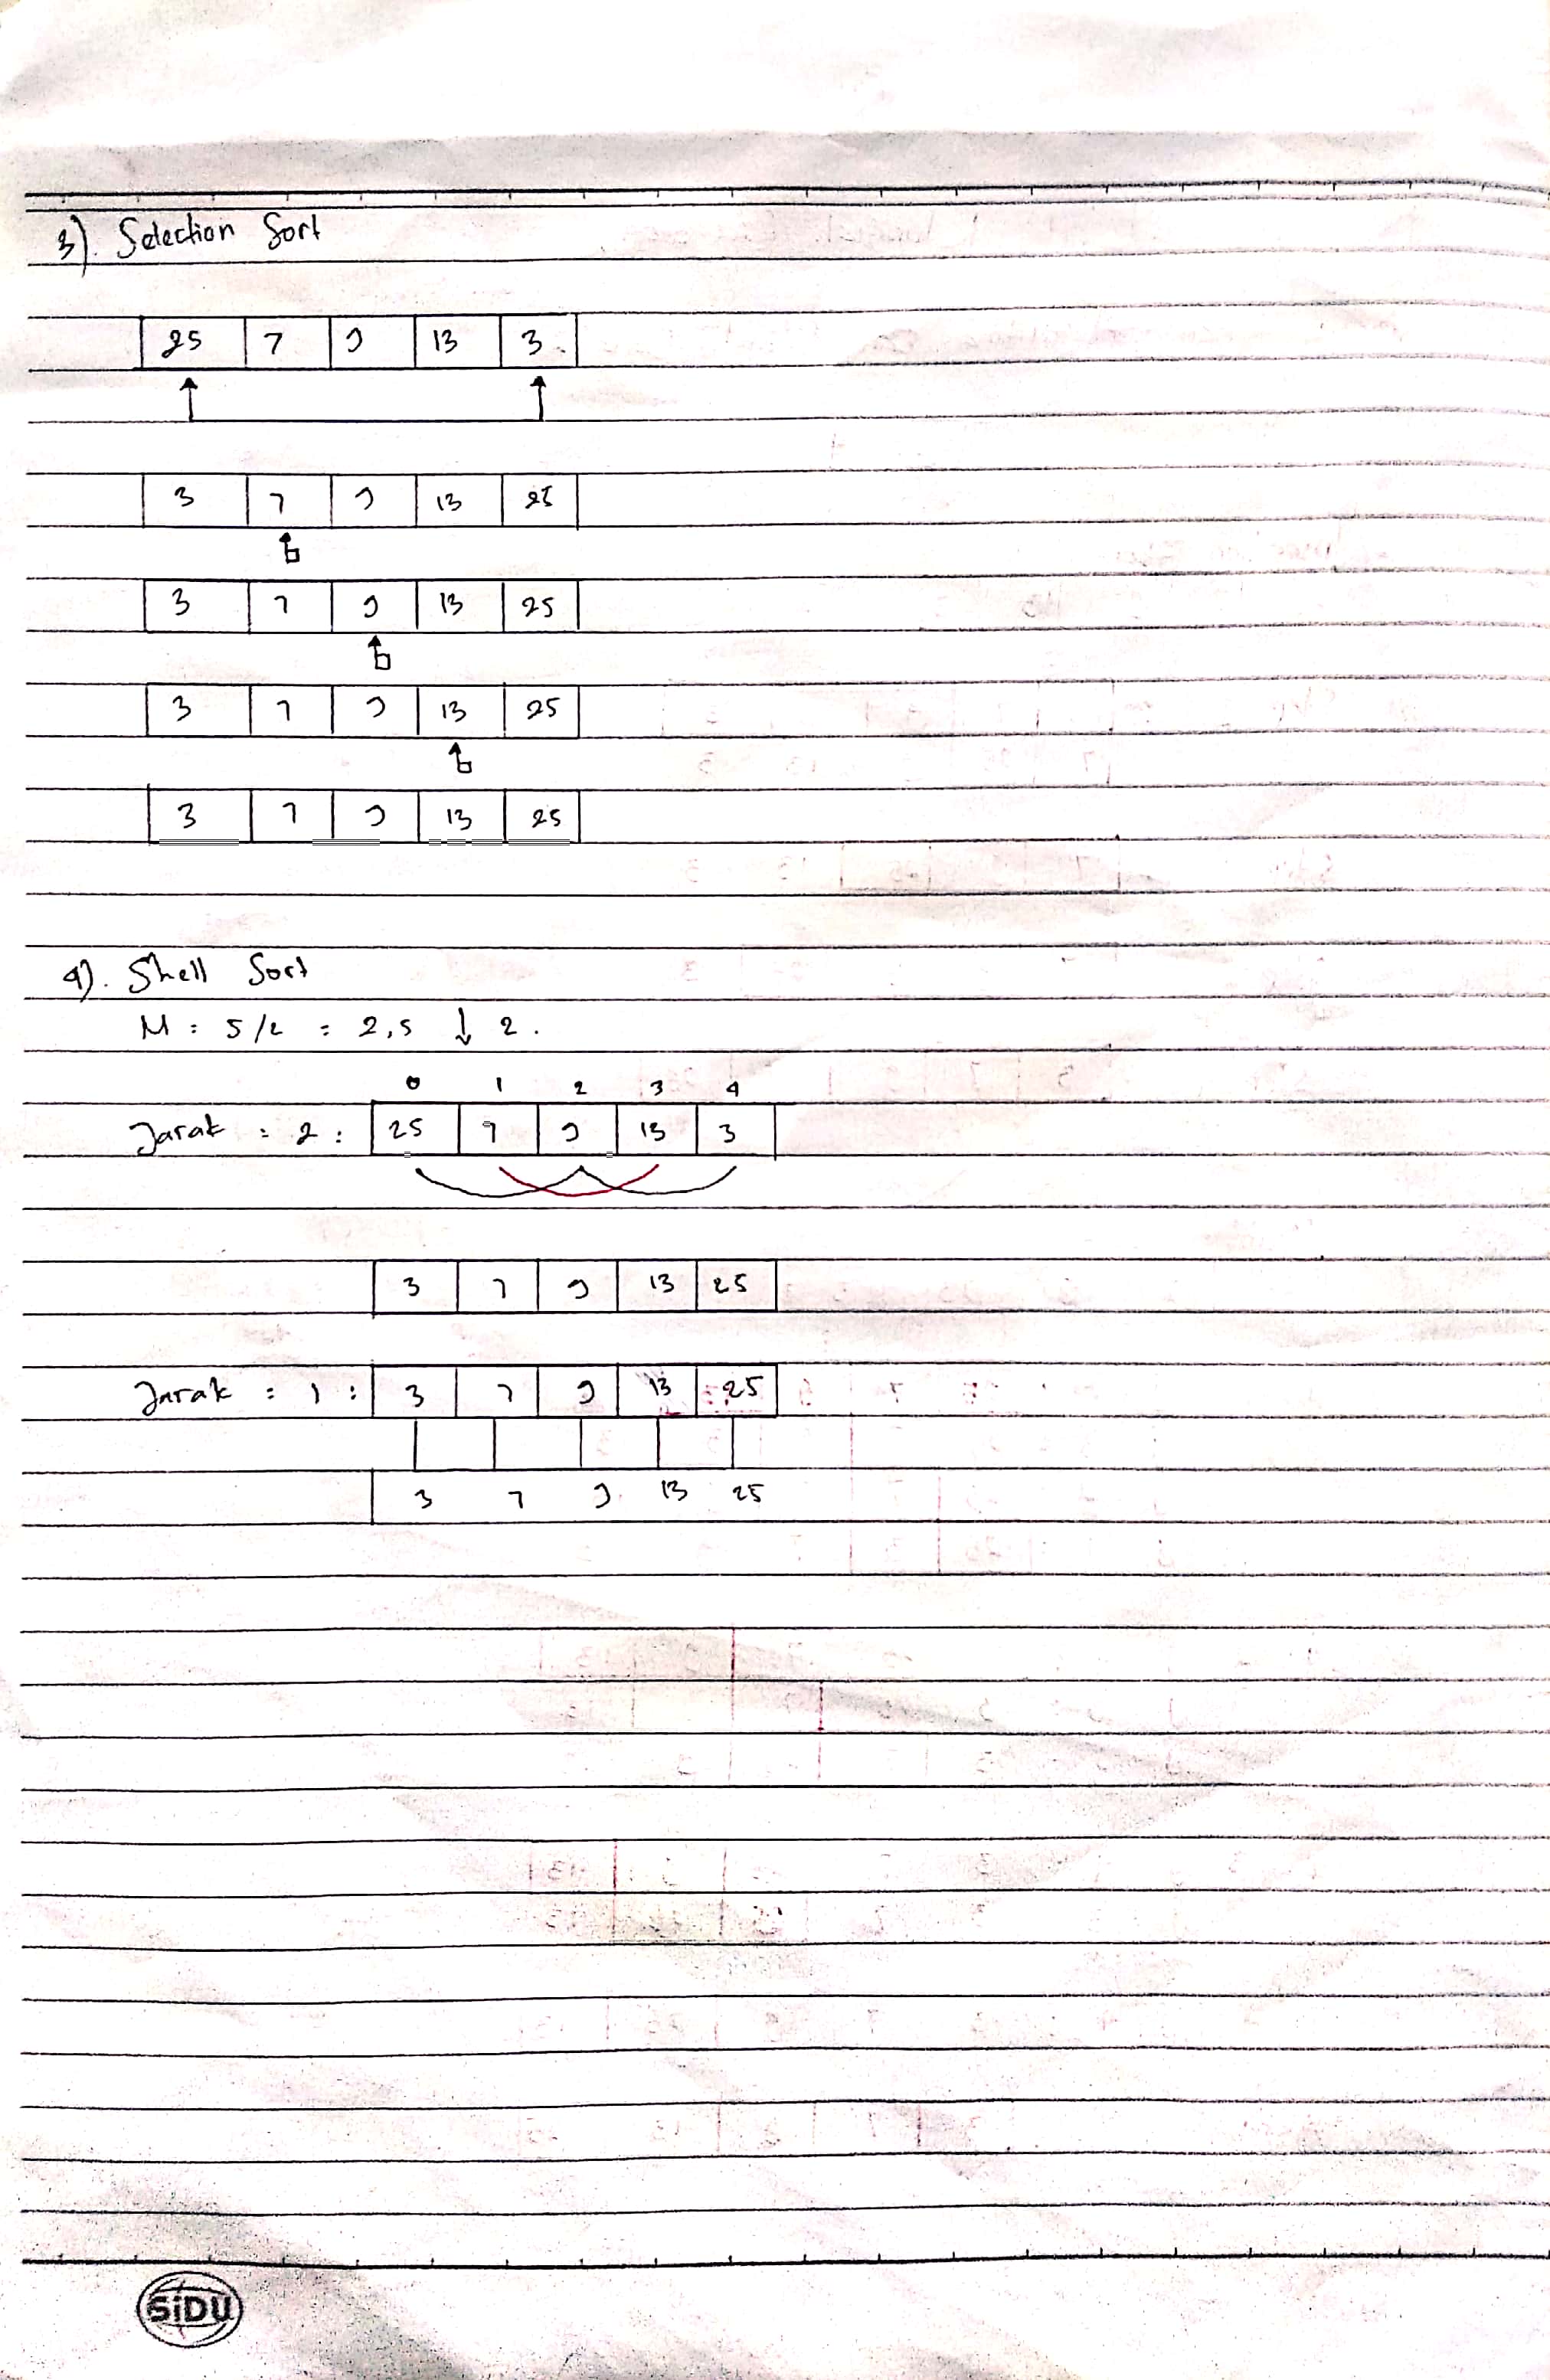 3). Selection Sort
25 7 9 13 3
3 7 9 13 25
3 7 9 13 25
3 7 9 13 25
3 7 9 13 25
4). Shell Sort
M = 5/2 = 2,5 ↓ 2.
0 1 2 3 4
Jarak = 2 : 25 7 9 13 3
3 7 9 13 25
Jarak = 1 : 3 7 9 13 25
3 7 9 13 25
SiDU